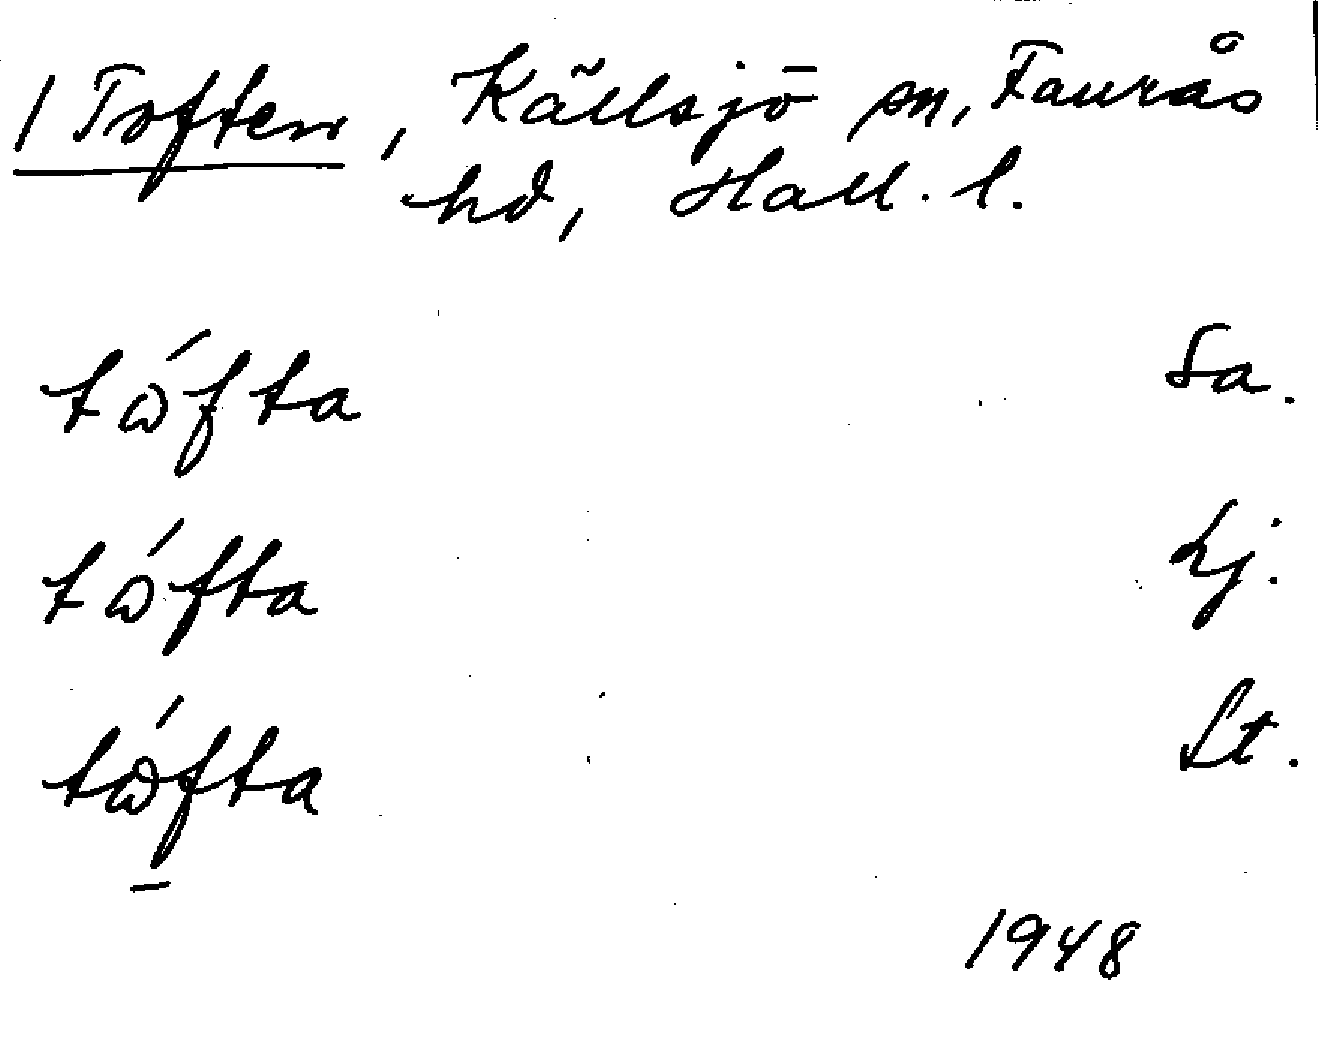 1 Toften, Källsjö sn, Faurås
hd, Hall. l.
tófta Sa.
tófta Lj.
tófta St.
1948